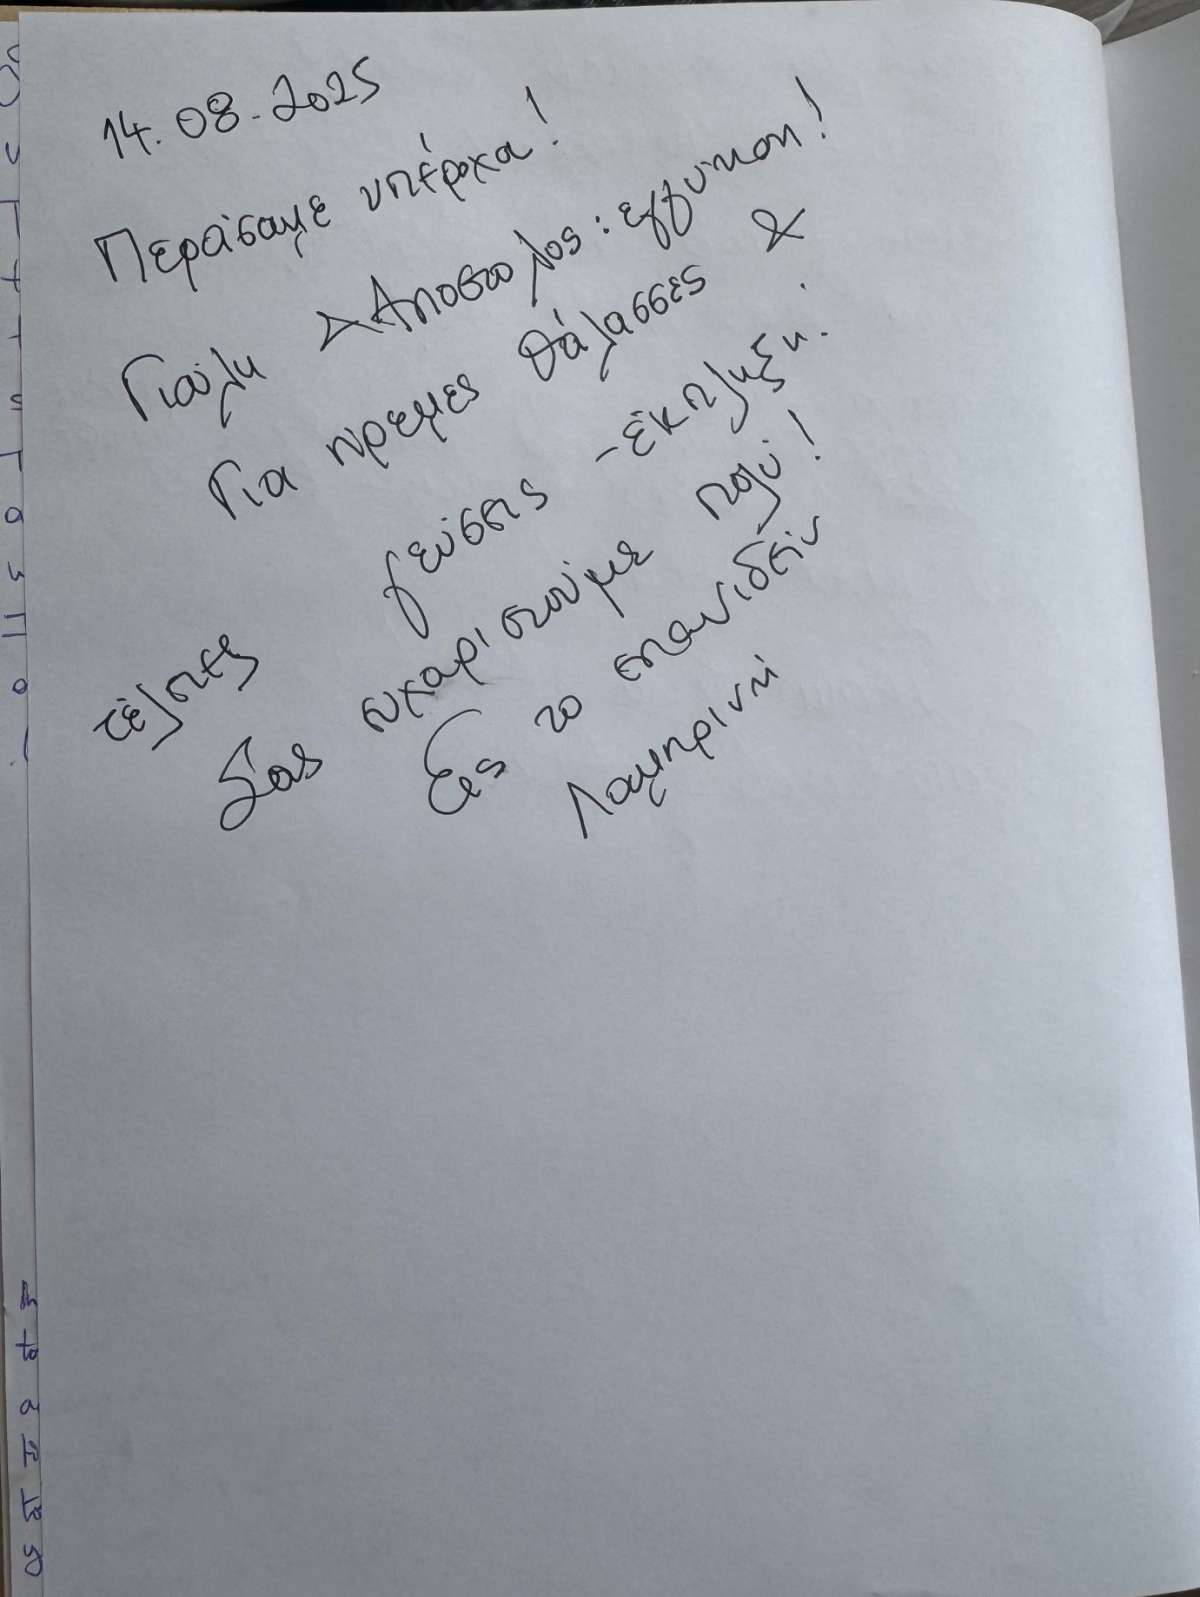 14.08.2025
Περάσαμε υπέροχα!
Γιούλη & Αποστόλος: εγγύηση!
Για ήρεμες θάλασσες &
τέλειες γεύσεις -έκπληξη.
Σας ευχαριστούμε πολύ!
Εις το επανιδείν
Λαμπρινή